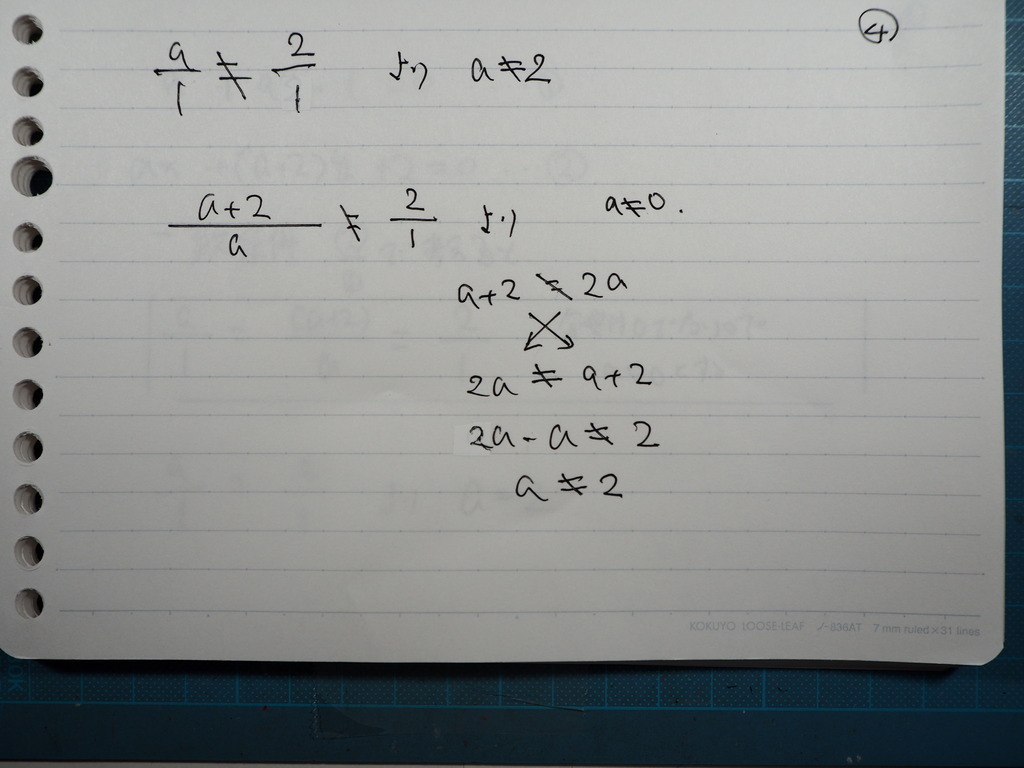 ④
a/1 ≠ 2/1 より a≠2
(a+2)/a ≠ 2/1 より a≠0.
a+2 ≠ 2a
2a ≠ a+2
2a - a ≠ 2
a ≠ 2
KOKUYO LOOSE-LEAF ノ-836AT 7 mm ruled×31 lines